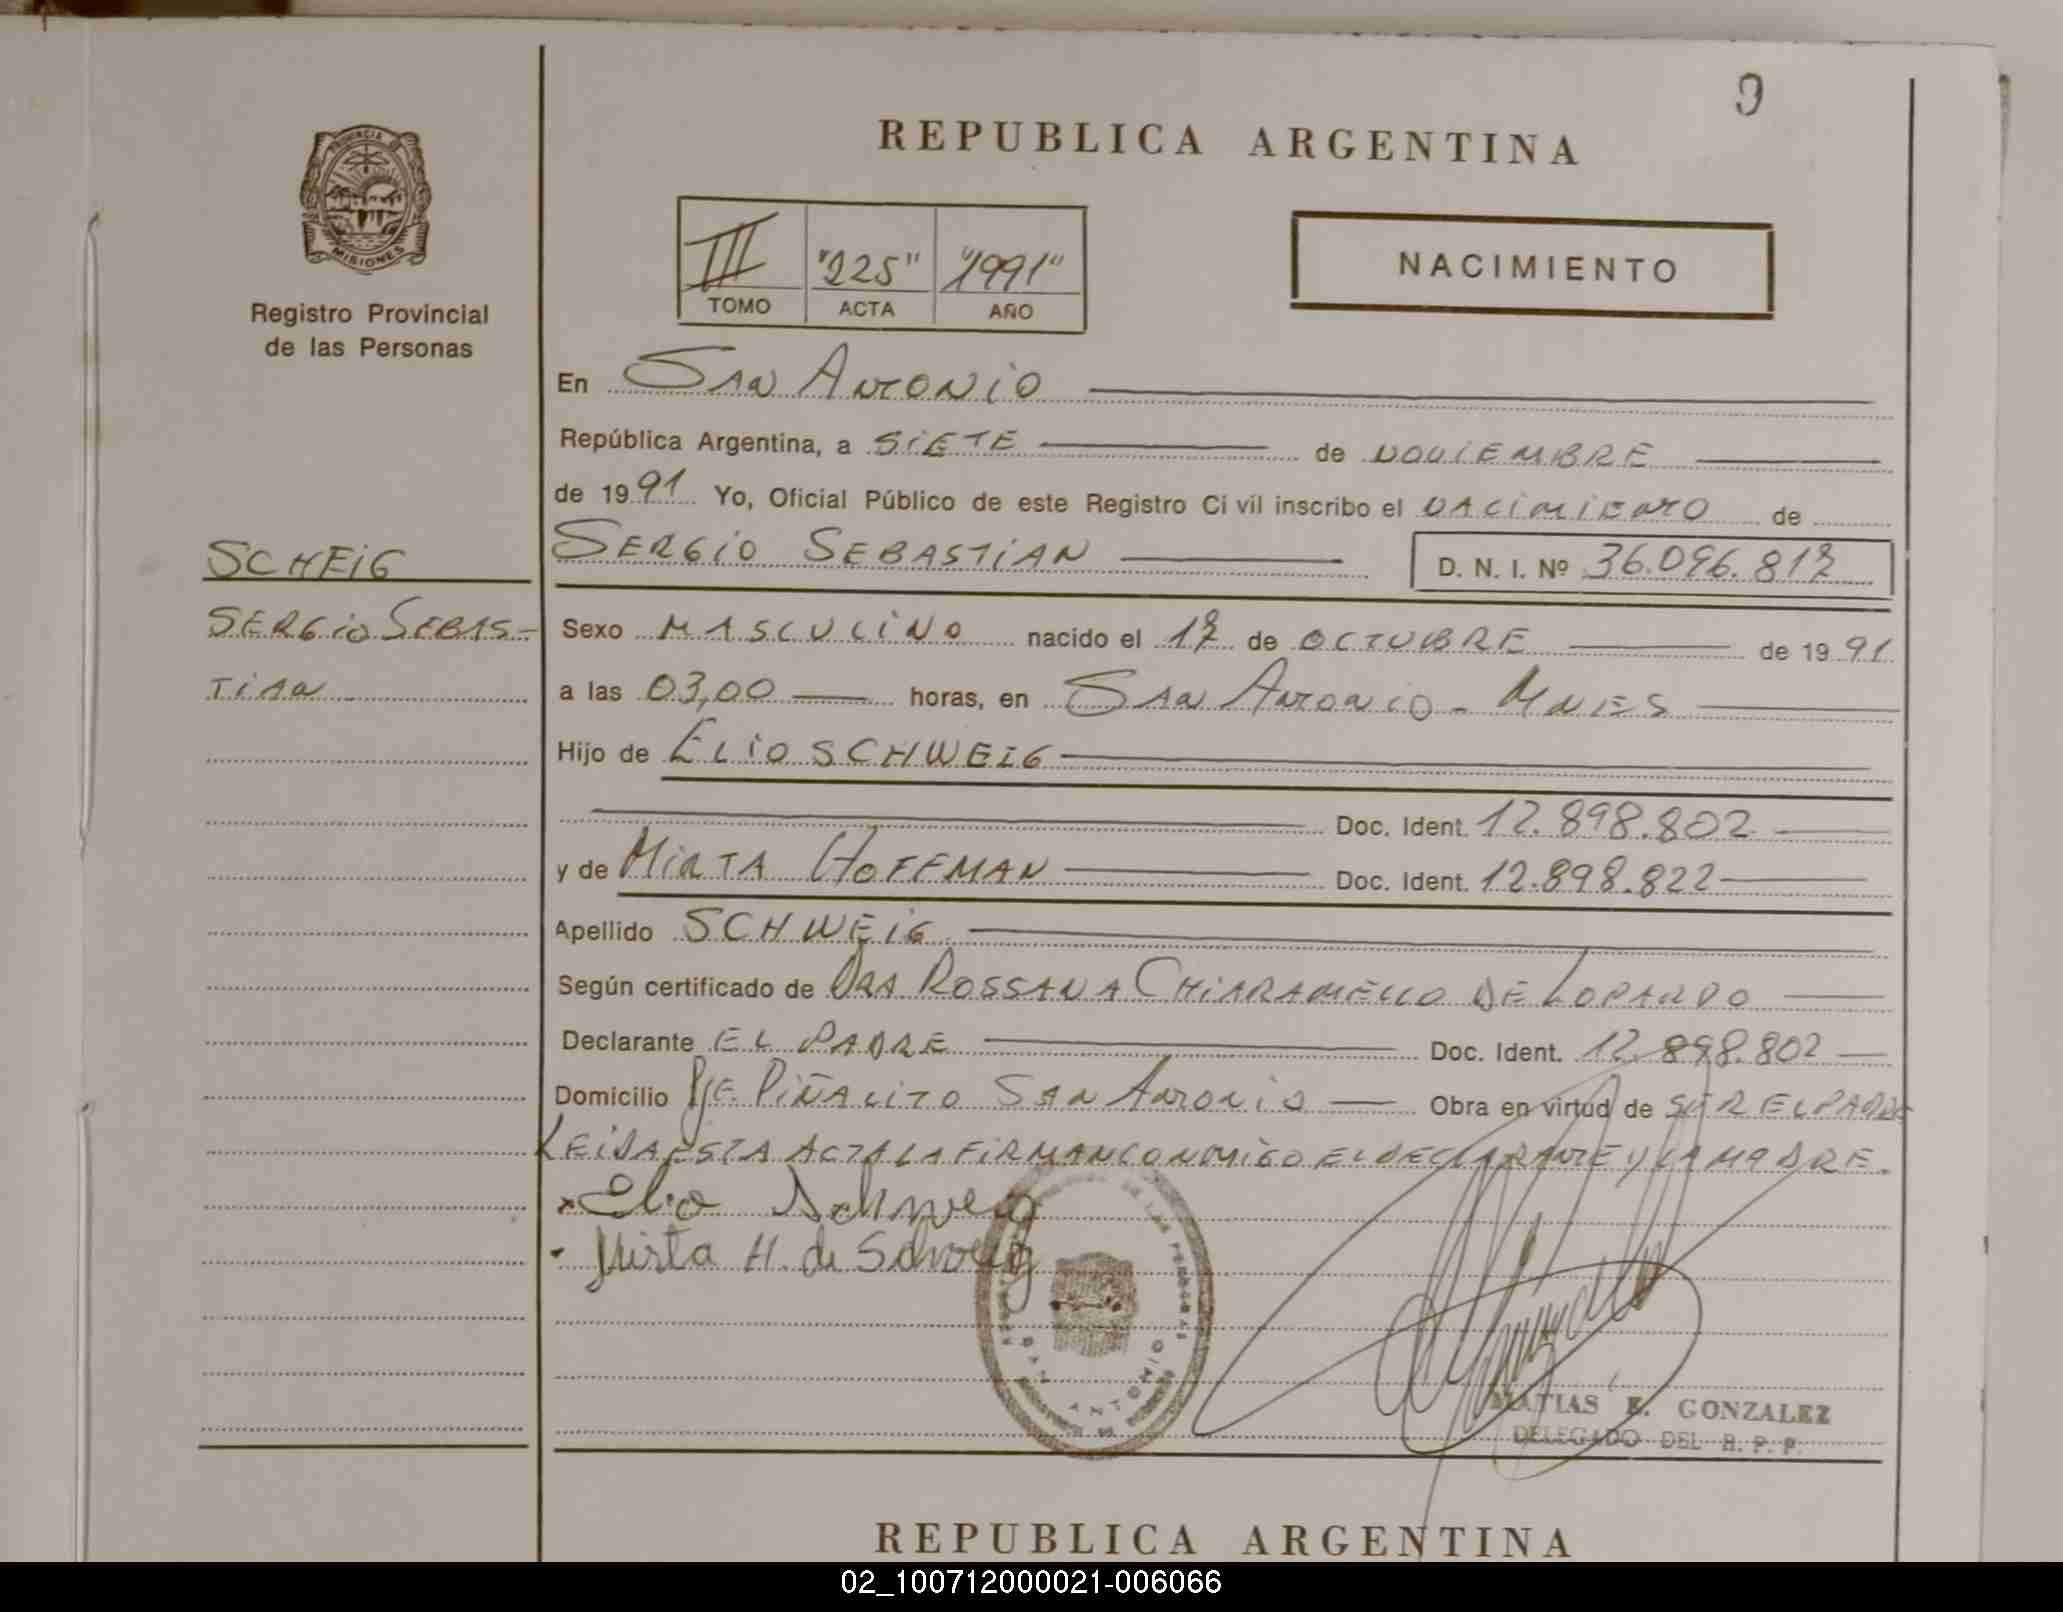 9
REPUBLICA ARGENTINA
PROVINCIA
MISIONES
Registro Provincial
de las Personas
III "225" "1991"
TOMO ACTA AÑO
NACIMIENTO
En SAN ANTONIO
República Argentina, a SIETE de NOVIEMBRE
de 1991 Yo, Oficial Público de este Registro Civil inscribo el NACIMIENTO de
SERGIO SEBASTIAN D. N. I. Nº 36.096.817
SCHEIG
SERGIO SEBAS-
TIAN
Sexo MASCULINO nacido el 17 de OCTUBRE de 1991
a las 03,00 horas, en SAN ANTONIO - MNES
Hijo de ELIO SCHWEIG
Doc. Ident. 12.898.802
y de MIRTA HOFFMAN Doc. Ident. 12.898.822
Apellido SCHWEIG
Según certificado de DRA ROSSANA CHIARAMELLO DE LOPARDO
Declarante EL PADRE Doc. Ident. 12.898.802
Domicilio PJE. PIÑALITO SAN ANTONIO Obra en virtud de SER EL PADRE
LEIDA ESTA ACTA LA FIRMAN CONMIGO EL DECLARANTE Y LA MADRE.
Elio Schweig
Mirta H. de Schweig
SAN ANTONIO
MATIAS E. GONZALEZ
DELEGADO DEL R. P. P.
REPUBLICA ARGENTINA
02_100712000021-006066